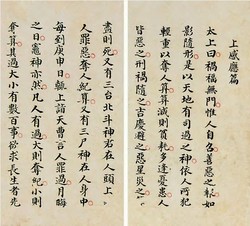 上感應篇
太上曰禍福無門惟人自召善惡之報如
影隨形是以天地有司過之神依人所犯
輕重以奪人算算減則貧耗多逢憂患人
皆惡之刑禍隨之吉慶避之惡星災之
盡則死又有三台北斗神君在人頭上
人罪惡奪人紀算又有三尸神在人身中
每到庚申日輒上詣天曹言人罪過月晦
之日竈神亦然凡人有過大則奪紀小則
奪算其過大小有數百事欲求長生者先